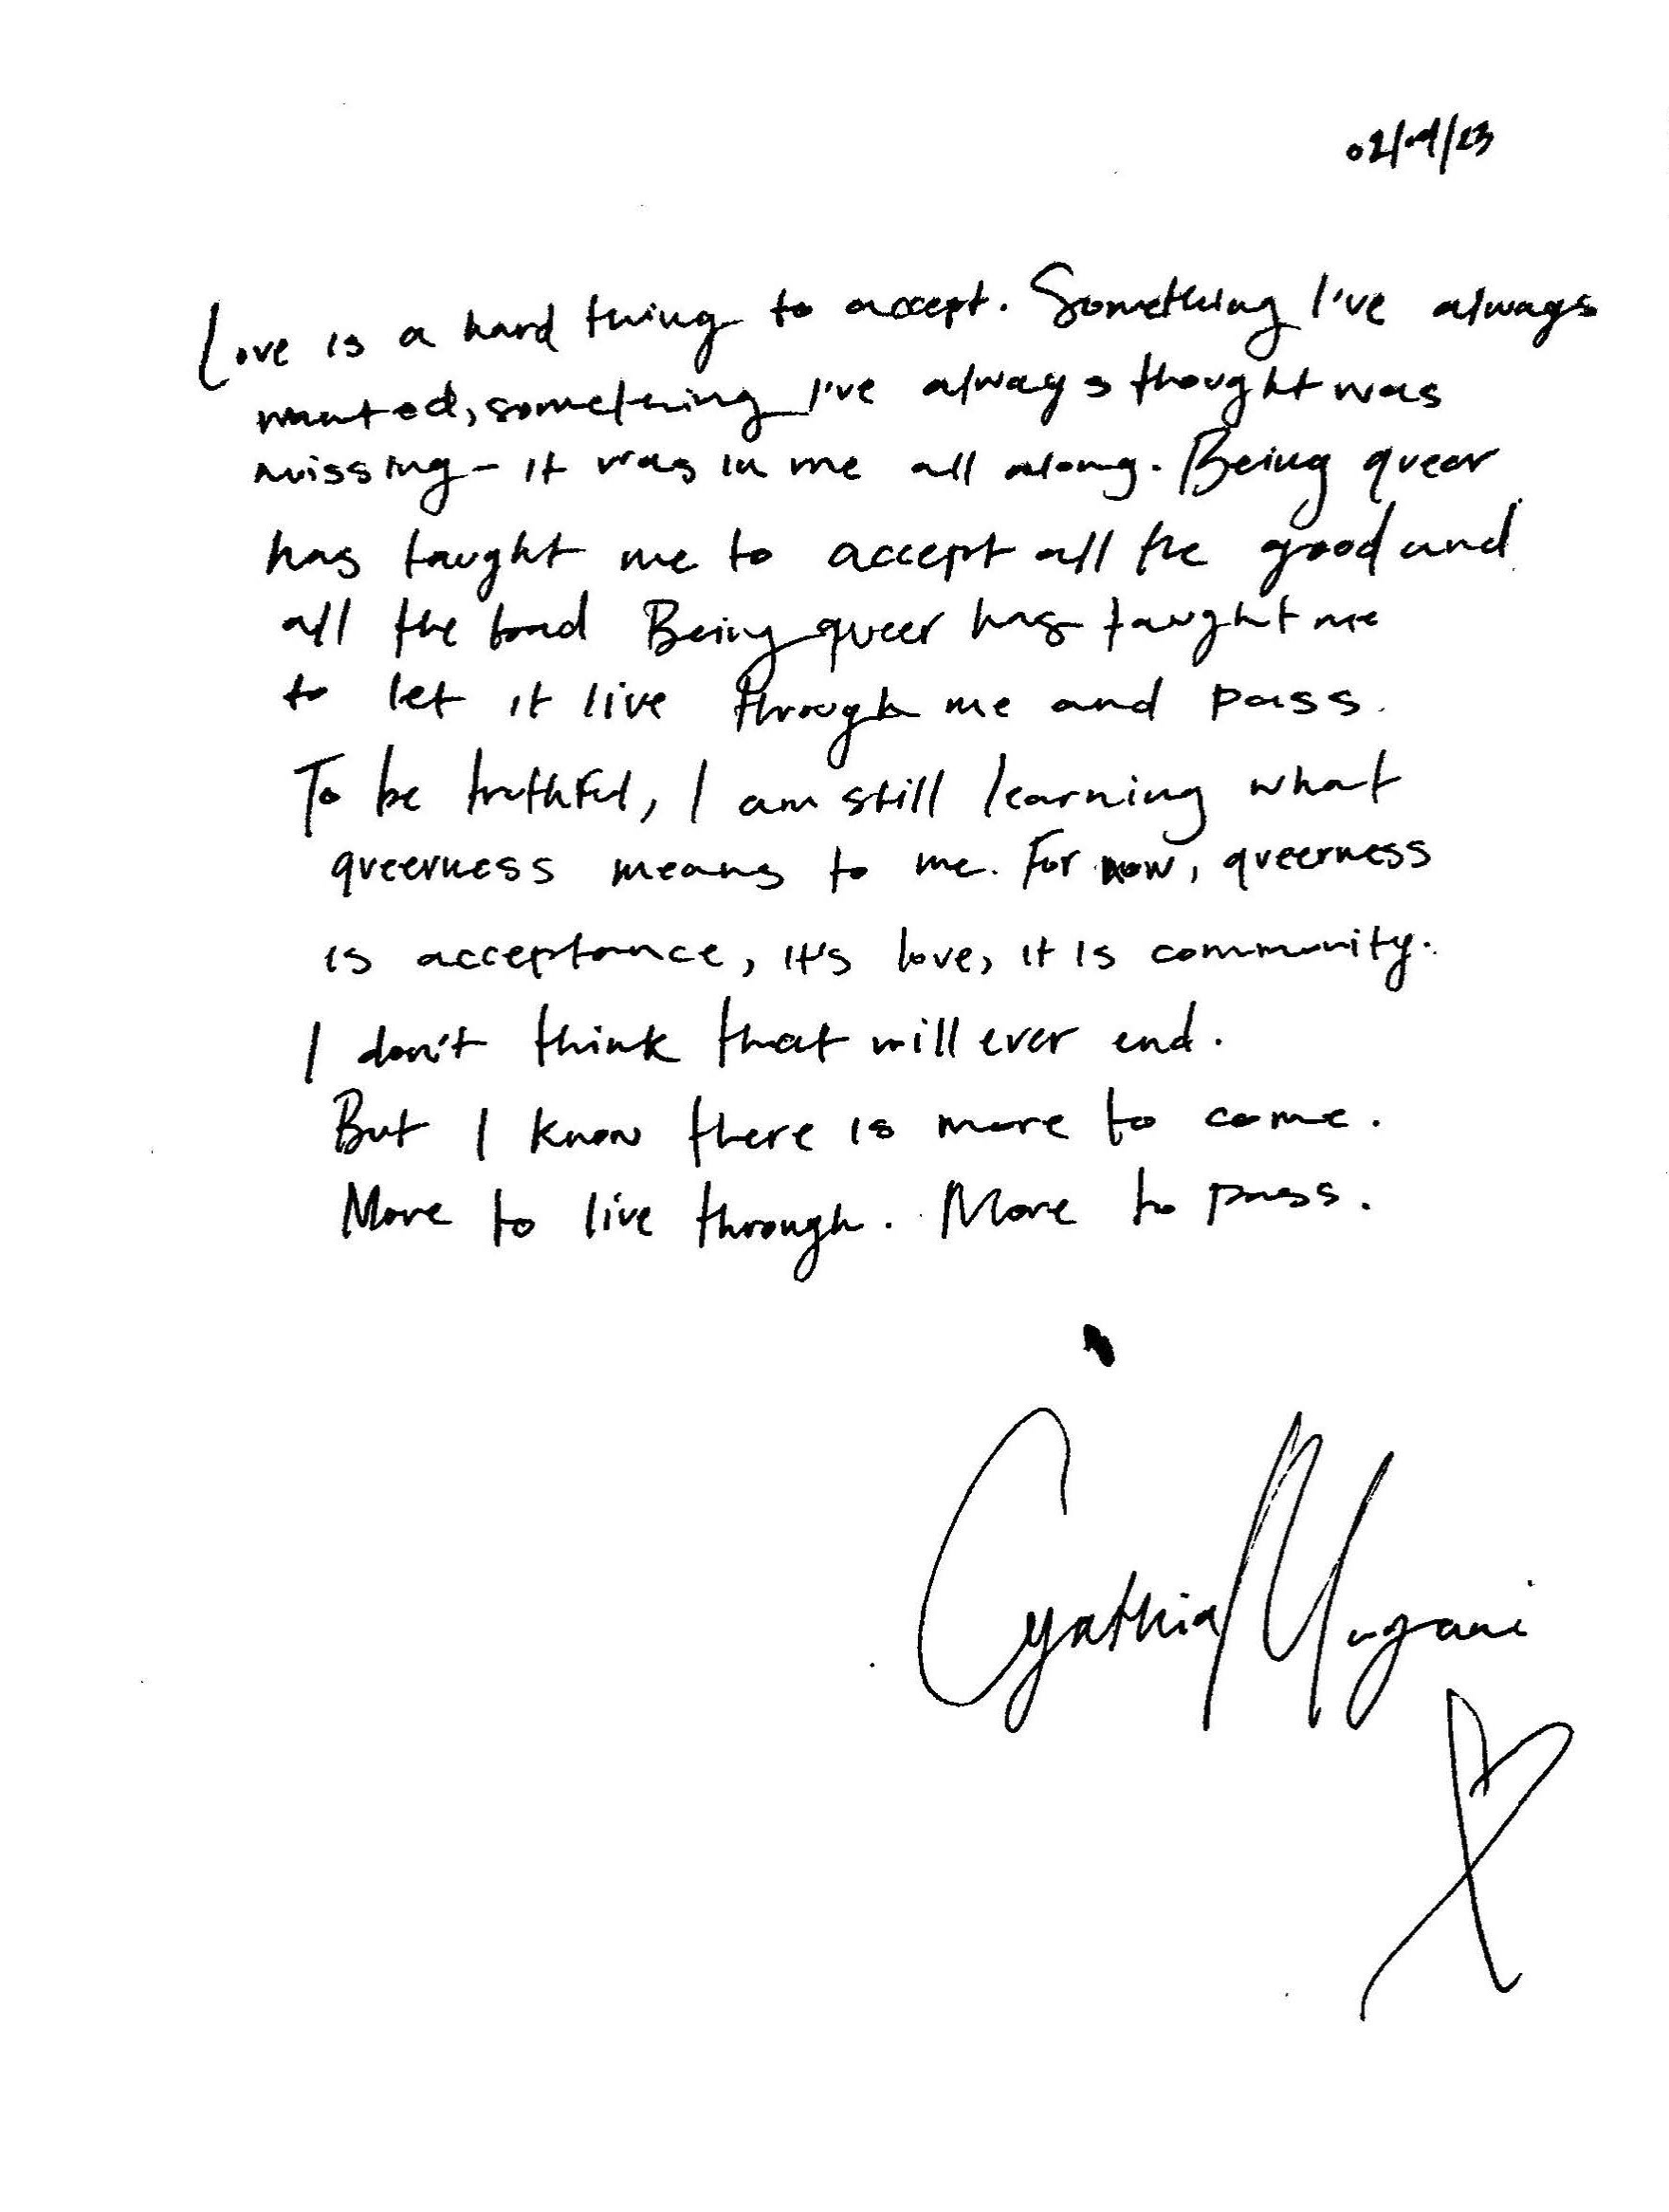 Love is a hard thing to accept. Something I've always
wanted, something I've always thought was
missing - it was in me all along. Being queer
has taught me to accept all the good and
all the bad Being queer has taught me
to let it live through me and pass.
To be truthful, I am still learning what
queerness means to me. For now, queerness
is acceptance, it's love, it is community.
I don't think that will ever end.
But I know there is more to come.
More to live through. More to pass.
Cynthia Mugani